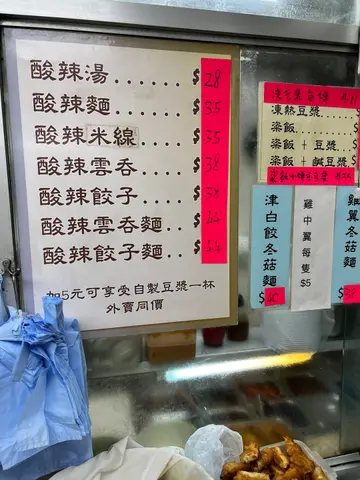 酸辣湯...... $28
酸辣麵...... $35
酸辣米線.... $35
酸辣雲吞.... $38
酸辣餃子.... $38
酸辣雲吞麵.. $44
酸辣餃子麵.. $44
加5元可享受自製豆漿一杯
外賣同價
凍熱豆漿
粢飯
粢飯 + 豆漿
粢飯 + 鹹豆漿
津白餃冬菇麵
$40
雞中翼每隻$5
雞翼冬菇麵